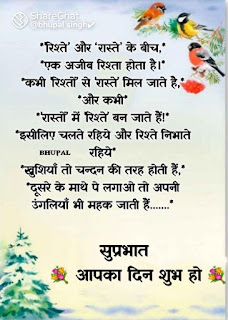 ShareChat
@bhupal singh
*रिश्ते' और 'रास्ते' के बीच,*
*एक अजीब रिश्ता होता है।*
*कभी 'रिश्तों' से 'रास्ते' मिल जाते है,*
*और कभी*
*रास्तों' में 'रिश्ते' बन जाते हैं!*
*इसीलिए चलते रहिये और रिश्ते निभाते
BHUPAL रहिये*
*खुशियाँ तो चन्दन की तरह होती हैं,*
*दूसरे के माथे पे लगाओ तो अपनी
उंगलियाँ भी महक जाती हैं.......*
सुप्रभात
आपका दिन शुभ हो